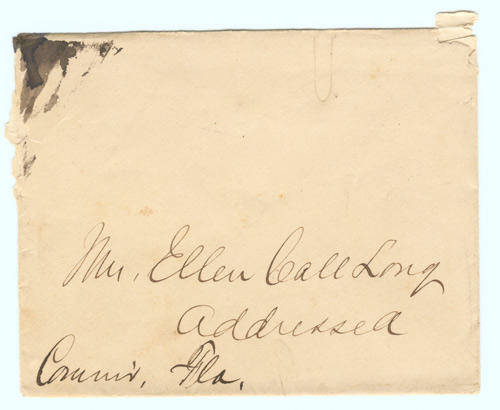 Mrs. Ellen Call Long
Addressed
Commr. Fla.